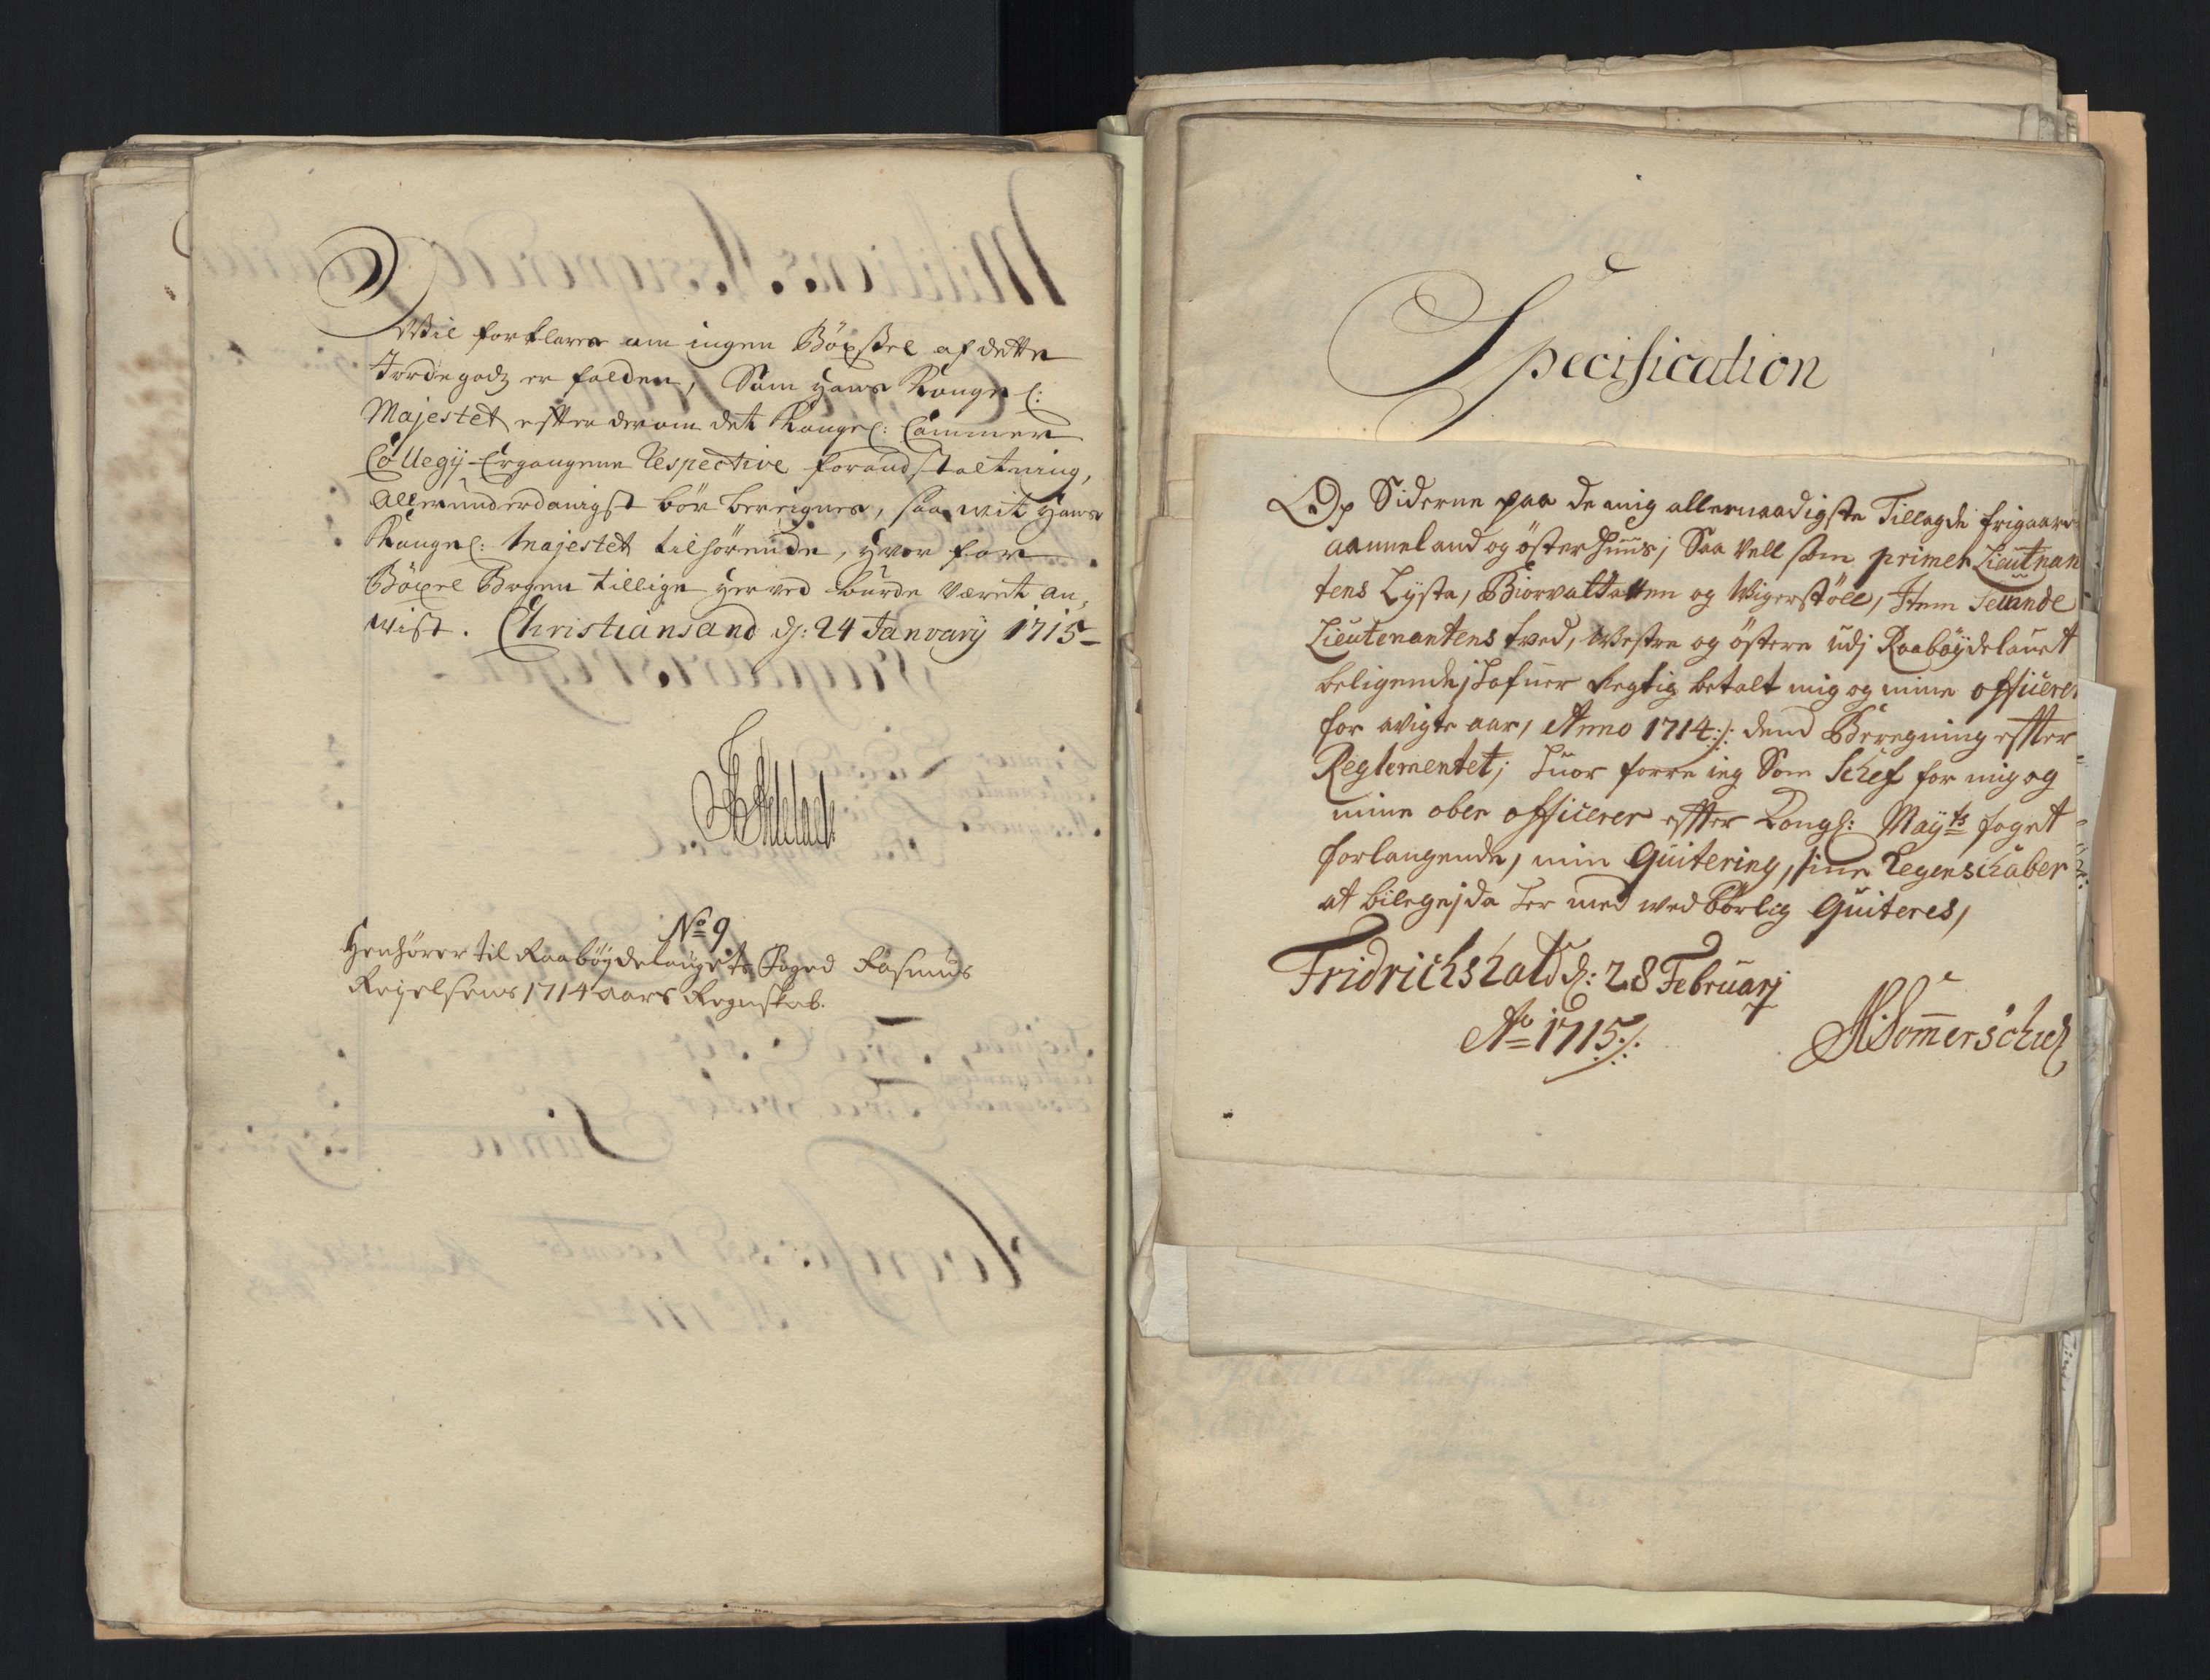 Wil forklares om ingen Böxsel af dette
Jordegodz er falden, Som Hans Kongel:
Majestet efter derom det Kongel: Cammer
Collegij Ergangene Respective foranstaltning,
Allerunderdanigst bör bereignes, saa wit Hans
Kongel: Majestet tilhörende, Hvor for
Böxel Bogen tillige herved burde Været an,
wist. Christiansand d: 24 Januarij 1715
No 9.
Henhörer til Raaböydelaugets Foged Rasmus
1714 aars Regnskab.
Specification
Op Siderne paa de mig allernaadigste Tillagde frigaard
Aanneland og österhuus; Saa Vell som primer Lieutnan
tens Lysta, Biorvatt og Wigerstöll, Item Secunde
Lieutenantens Tved, Westre og östere udj Raaböydelauet
beligende; hafuer Rigtig betalt mig og mine officerer
for Avigte aar, Anno 1714:/: dend Beregning efter
Reglementet; huor forre ieg Som Schef for mig og
mine ober officerer efter Kongl: Mayts foget
forlangende, min Quitering, sine Regenschaber
at bilege; da her med wedbörlig Quiteres,
Fridrichshald d: 28 Februarj
Ao 1715:/:
Sommerschield